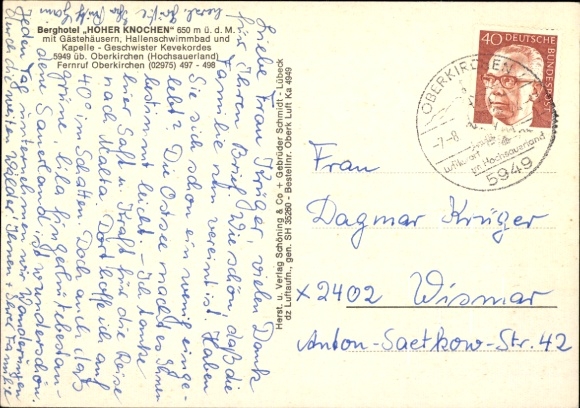 Berghotel „HOHER KNOCHEN" 650 m ü. d. M.
mit Gästehäusern, Hallenschwimmbad und
Kapelle - Geschwister Kevekordes
5949 üb. Oberkirchen (Hochsauerland)
Fernruf Oberkirchen (02975) 497 - 498
Liebe Frau Krüger, vielen Dank
für Ihren Brief. Wie schön, daß die
Familie nun vereint ist. Haben
Sie sich schon ein wenig einge-
lebt? Die Ostsee macht es Ihnen
bestimmt leicht - Ich tanke
hier Saft u. Kraft für die Reise
nach Malta. Dort hoffentlich auf
40° im Schatten. Doch auch das
grüne, lila fingerhutbestan-
dene Sauerland ist wunderschön.
Jeden Tag unternehmen wir Wanderungen
durch die weiten Wälder. Ihnen + Ihrer Familie
herzl. Grüße
Herst. u. Verlag Schöning & Co + Gebrüder Schmidt - Lübeck
dz Luftaufn., gen. SH 35260 - Bestellnr. Oberk Luft Ka 4949
40 DEUTSCHE BUNDESPOST
OBERKIRCHEN
-7.-8
Luftkurort
im Hochsauerland
5949
Frau
Dagmar Krüger
x 2402 Wismar
Anton-Saefkow-Str. 42